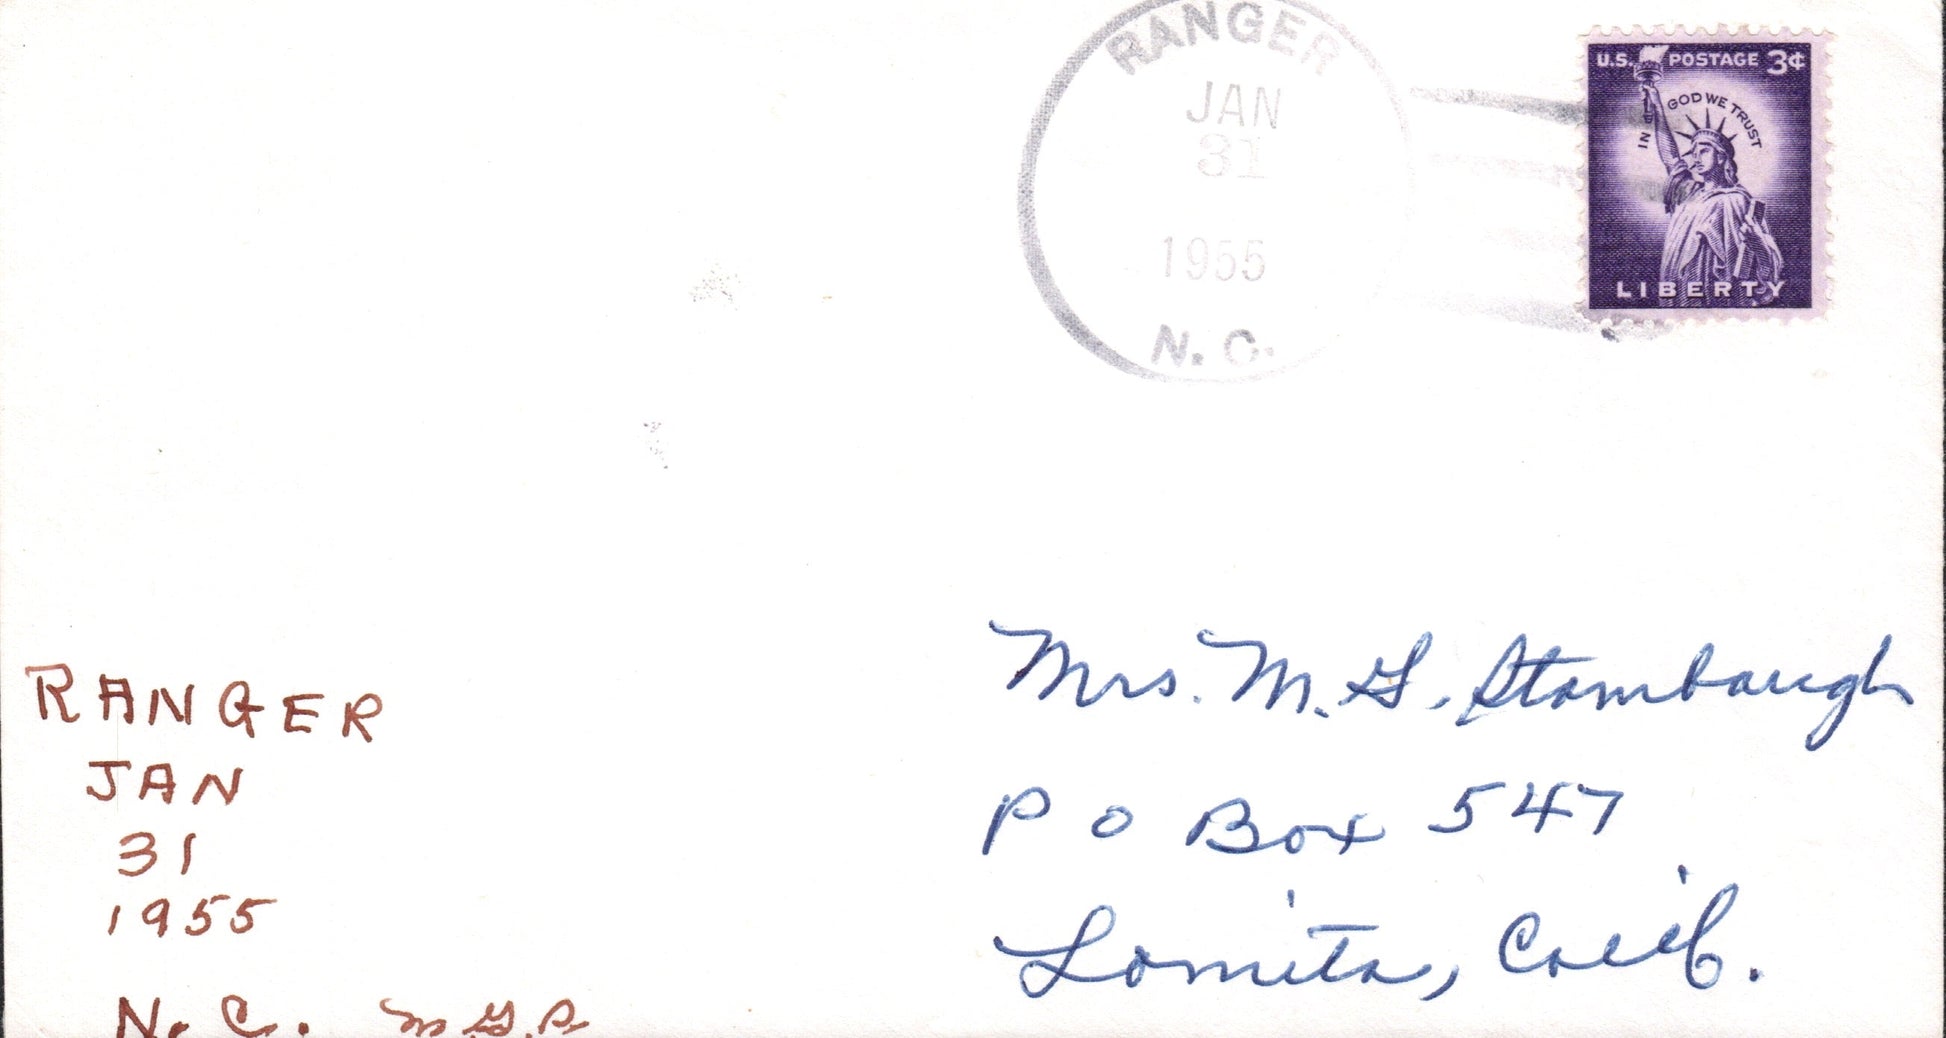 RANGER
JAN
31
1955
N. C.
U.S. POSTAGE 3¢
IN GOD WE TRUST
LIBERTY
Mrs. M. G. Stambaugh
P O Box 547
Lomita, Calif.
RANGER
JAN
31
1955
N. C. M.G.S.